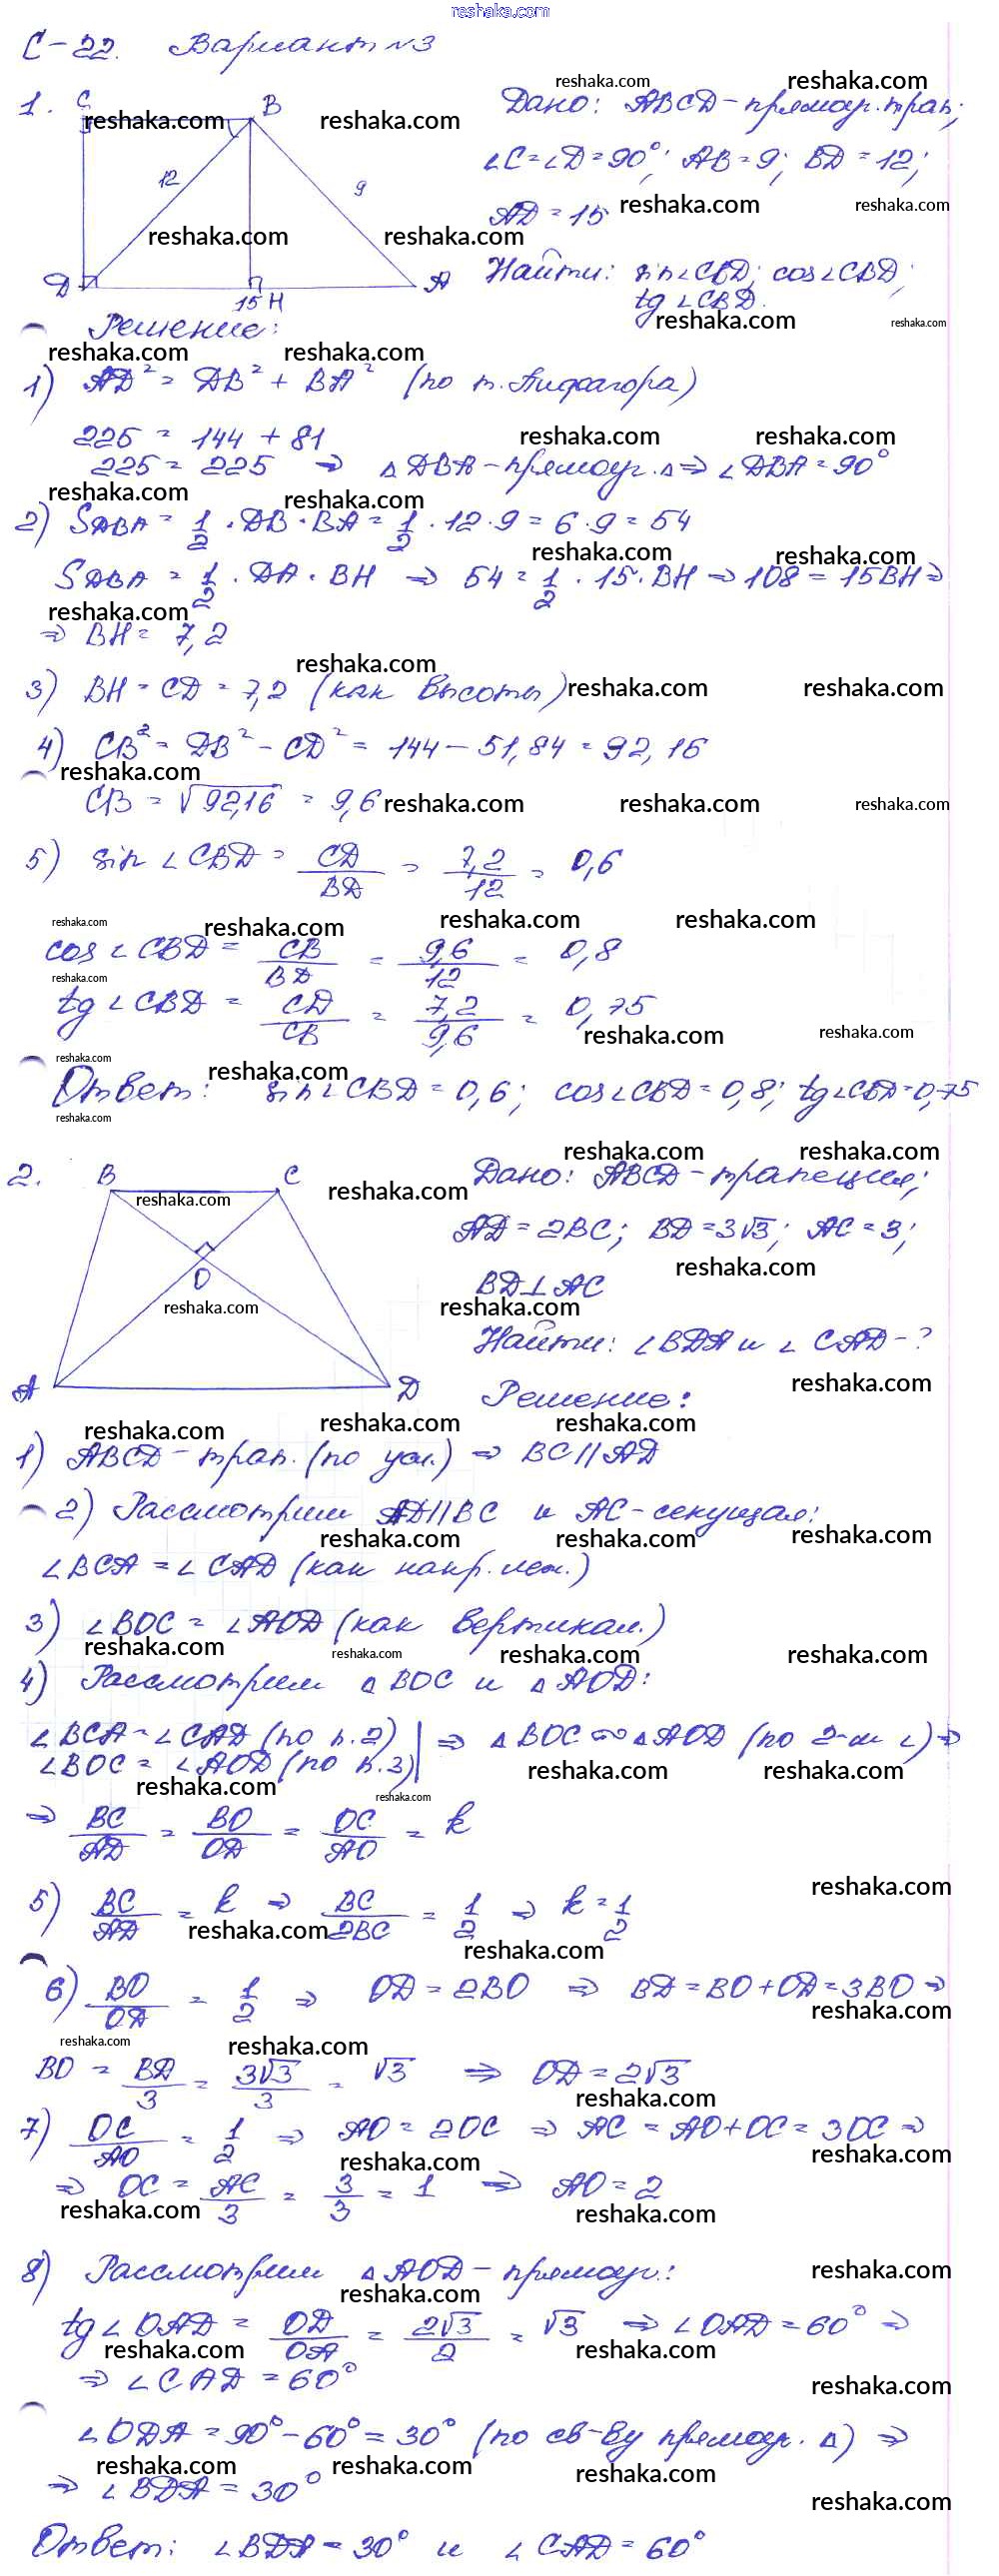 reshaka.com
С-22. Вариант №3
1.
C
B
12
9
D
15
H
A
Дано: ABCD - прямоуг. трап;
∠C=∠D=90°; AB=9; BD=12;
AD=15
Найти: sin∠CBD; cos∠CBD;
tg∠CBD.
Решение:
1) AD² = DB² + BA² (по т. Пифагора)
225 = 144 + 81
225 = 225 ⇒ △DBA - прямоуг. △ ⇒ ∠DBA = 90°
2) SDBA = 1/2 · DB · BA = 1/2 · 12 · 9 = 6 · 9 = 54
SDBA = 1/2 · DA · BH ⇒ 54 = 1/2 · 15 · BH ⇒ 108 = 15BH ⇒
⇒ BH = 7,2
3) BH = CD = 7,2 (как высоты)
4) CB² = DB² - CD² = 144 - 51,84 = 92,16
CB = √92,16 = 9,6
5) sin∠CBD = CD/BD = 7,2/12 = 0,6
cos∠CBD = CB/BD = 9,6/12 = 0,8
tg∠CBD = CD/CB = 7,2/9,6 = 0,75
Ответ: sin∠CBD = 0,6; cos∠CBD = 0,8; tg∠CBD = 0,75
2.
B
C
O
A
D
Дано: ABCD - трапеция;
AD = 2BC; BD = 3√3; AC = 3;
BD⊥AC
Найти: ∠BDA и ∠CAD - ?
Решение:
1) ABCD - трап. (по усл.) ⇒ BC∥AD
2) Рассмотрим AD∥BC и AC - секущая:
∠BCA = ∠CAD (как накр. леж.)
3) ∠BOC = ∠AOD (как вертикал.)
4) Рассмотрим △BOC и △AOD:
∠BCA = ∠CAD (по п.2) | ⇒ △BOC ∾ △AOD (по 2-м ∠) ⇒
∠BOC = ∠AOD (по п.3)
⇒ BC/AD = BO/OD = OC/AO = k
5) BC/AD = k ⇒ BC/2BC = 1/2 ⇒ k = 1/2
6) BO/OD = 1/2 ⇒ OD = 2BO ⇒ BD = BO + OD = 3BO ⇒
BO = BD/3 = 3√3/3 = √3 ⇒ OD = 2√3
7) OC/AO = 1/2 ⇒ AO = 2OC ⇒ AC = AO + OC = 3OC ⇒
⇒ OC = AC/3 = 3/3 = 1 ⇒ AO = 2
8) Рассмотрим △AOD - прямоуг.:
tg∠OAD = OD/OA = 2√3/2 = √3 ⇒ ∠OAD = 60° ⇒
⇒ ∠CAD = 60°
∠ODA = 90° - 60° = 30° (по св-ву прямоуг. △) ⇒
⇒ ∠BDA = 30°
Ответ: ∠BDA = 30° и ∠CAD = 60°